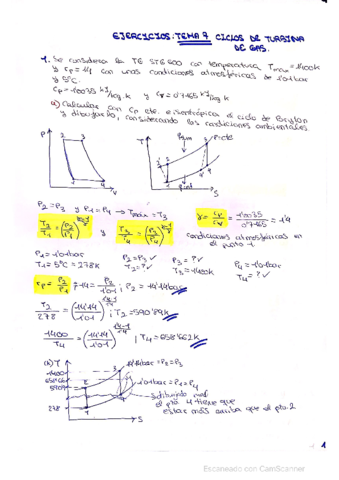 EJERCICIOS: TEMA 7 CICLOS DE TURBINA
DE GAS.
1. Se considera la TG STG600 con temperatura Tmax=1400K
y rp=14 con unas condiciones atmosféricas de 1'01bar
y 5°C.
cp=1'0035 kJ/kg·K y cv=0'7165 kJ/kg·K
a) Calcular con cp cte. e isentrópico el ciclo de Brayton
y dibujarlo, considerando las condiciones ambientales
P T
2 3
1 4
P=cte
V S
P2=P3 y P1=P4 → Tmax=T3
T2/T1=(P2/P1)^(γ-1/γ) y T3/T4=(P3/P4)^(γ-1/γ)
γ=cp/cv=1'0035/0'7165=1'4
condiciones atmosféricas en
el punto 1
P1=1'01bar P2=P3 ✓ P3=?✓ P4=1'01bar
T1=5°C=278K T2=?✓ T3=1400K T4=?✓
rp=P2/P1; 14=P2/1'01; P2=14'14bar
T2/278=(14'14/1'01)^(1'4-1/1'4); T2=590'89K
1400/T4=(14'14/1'01)^(1'4-1/1'4); T4=658'662K
T
14'14bar=P2=P3
1400
658'66
590'9
278
1'01bar=P1=P4
dibujado mal
el pto 4 tiene que
estar más arriba que el pto.2
S
1
Escaneado con CamScanner